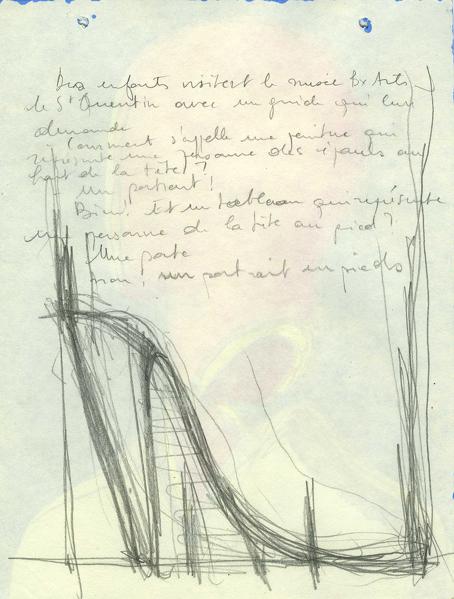 Des enfants visitent le musée Bx Arts
de St Quentin avec un guide qui leur
demande
Comment s'appelle une peinture qui
représente une personne des épaules au
haut de la tête ?
un portrait !
Bien ! Et un tableau qui représente
une personne de la tête au pied ?
Une porte
non, un portrait en pieds